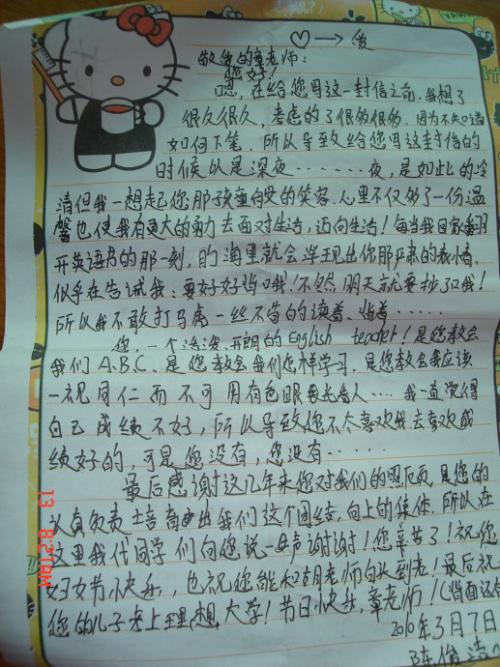 ♡→爱
敬爱的章老师：
您好！
嗯，在给您写这一封信之前，我想了
很久很久，考虑的了很多很多，因为不知道
如何下笔，所以导致给您写这封信的
时候以是深夜……夜，是如此的冷
清但我一想起您那孩童的笑容，心里不仅多了一份温
馨也使我有更大的勇力去面对生活，迈向生活！每当我回家翻
开英语书的那一刻，脑海里就会浮现出你那严肃的表情，
似乎在告诉我：要好好学习哦！不然，明天就要抄了哦！
所以我不敢打马虎一丝不苟的读着、……
您，一个活泼、开朗的English teacher！是您教会
我们A.B.C.是您教会我们怎样学习，是您教会我应该
一视同仁而不可用有色眼看人……我一直觉得
自己成绩不好，所以导致您不太喜欢我去喜欢成
绩好的，可是您没有，您没有……
最后感谢这几年来您对我们的照顾，是您的
认真负责培育出我们这个团结，向上的集体，所以在
这里我代同学们向您说一声谢谢！您辛苦了！祝您
妇女节快乐，也祝您能和老师白头到老！最后祝
您的儿子考上理想大学！节日快乐，章老师！（背面还有
2010年3月7日
陈